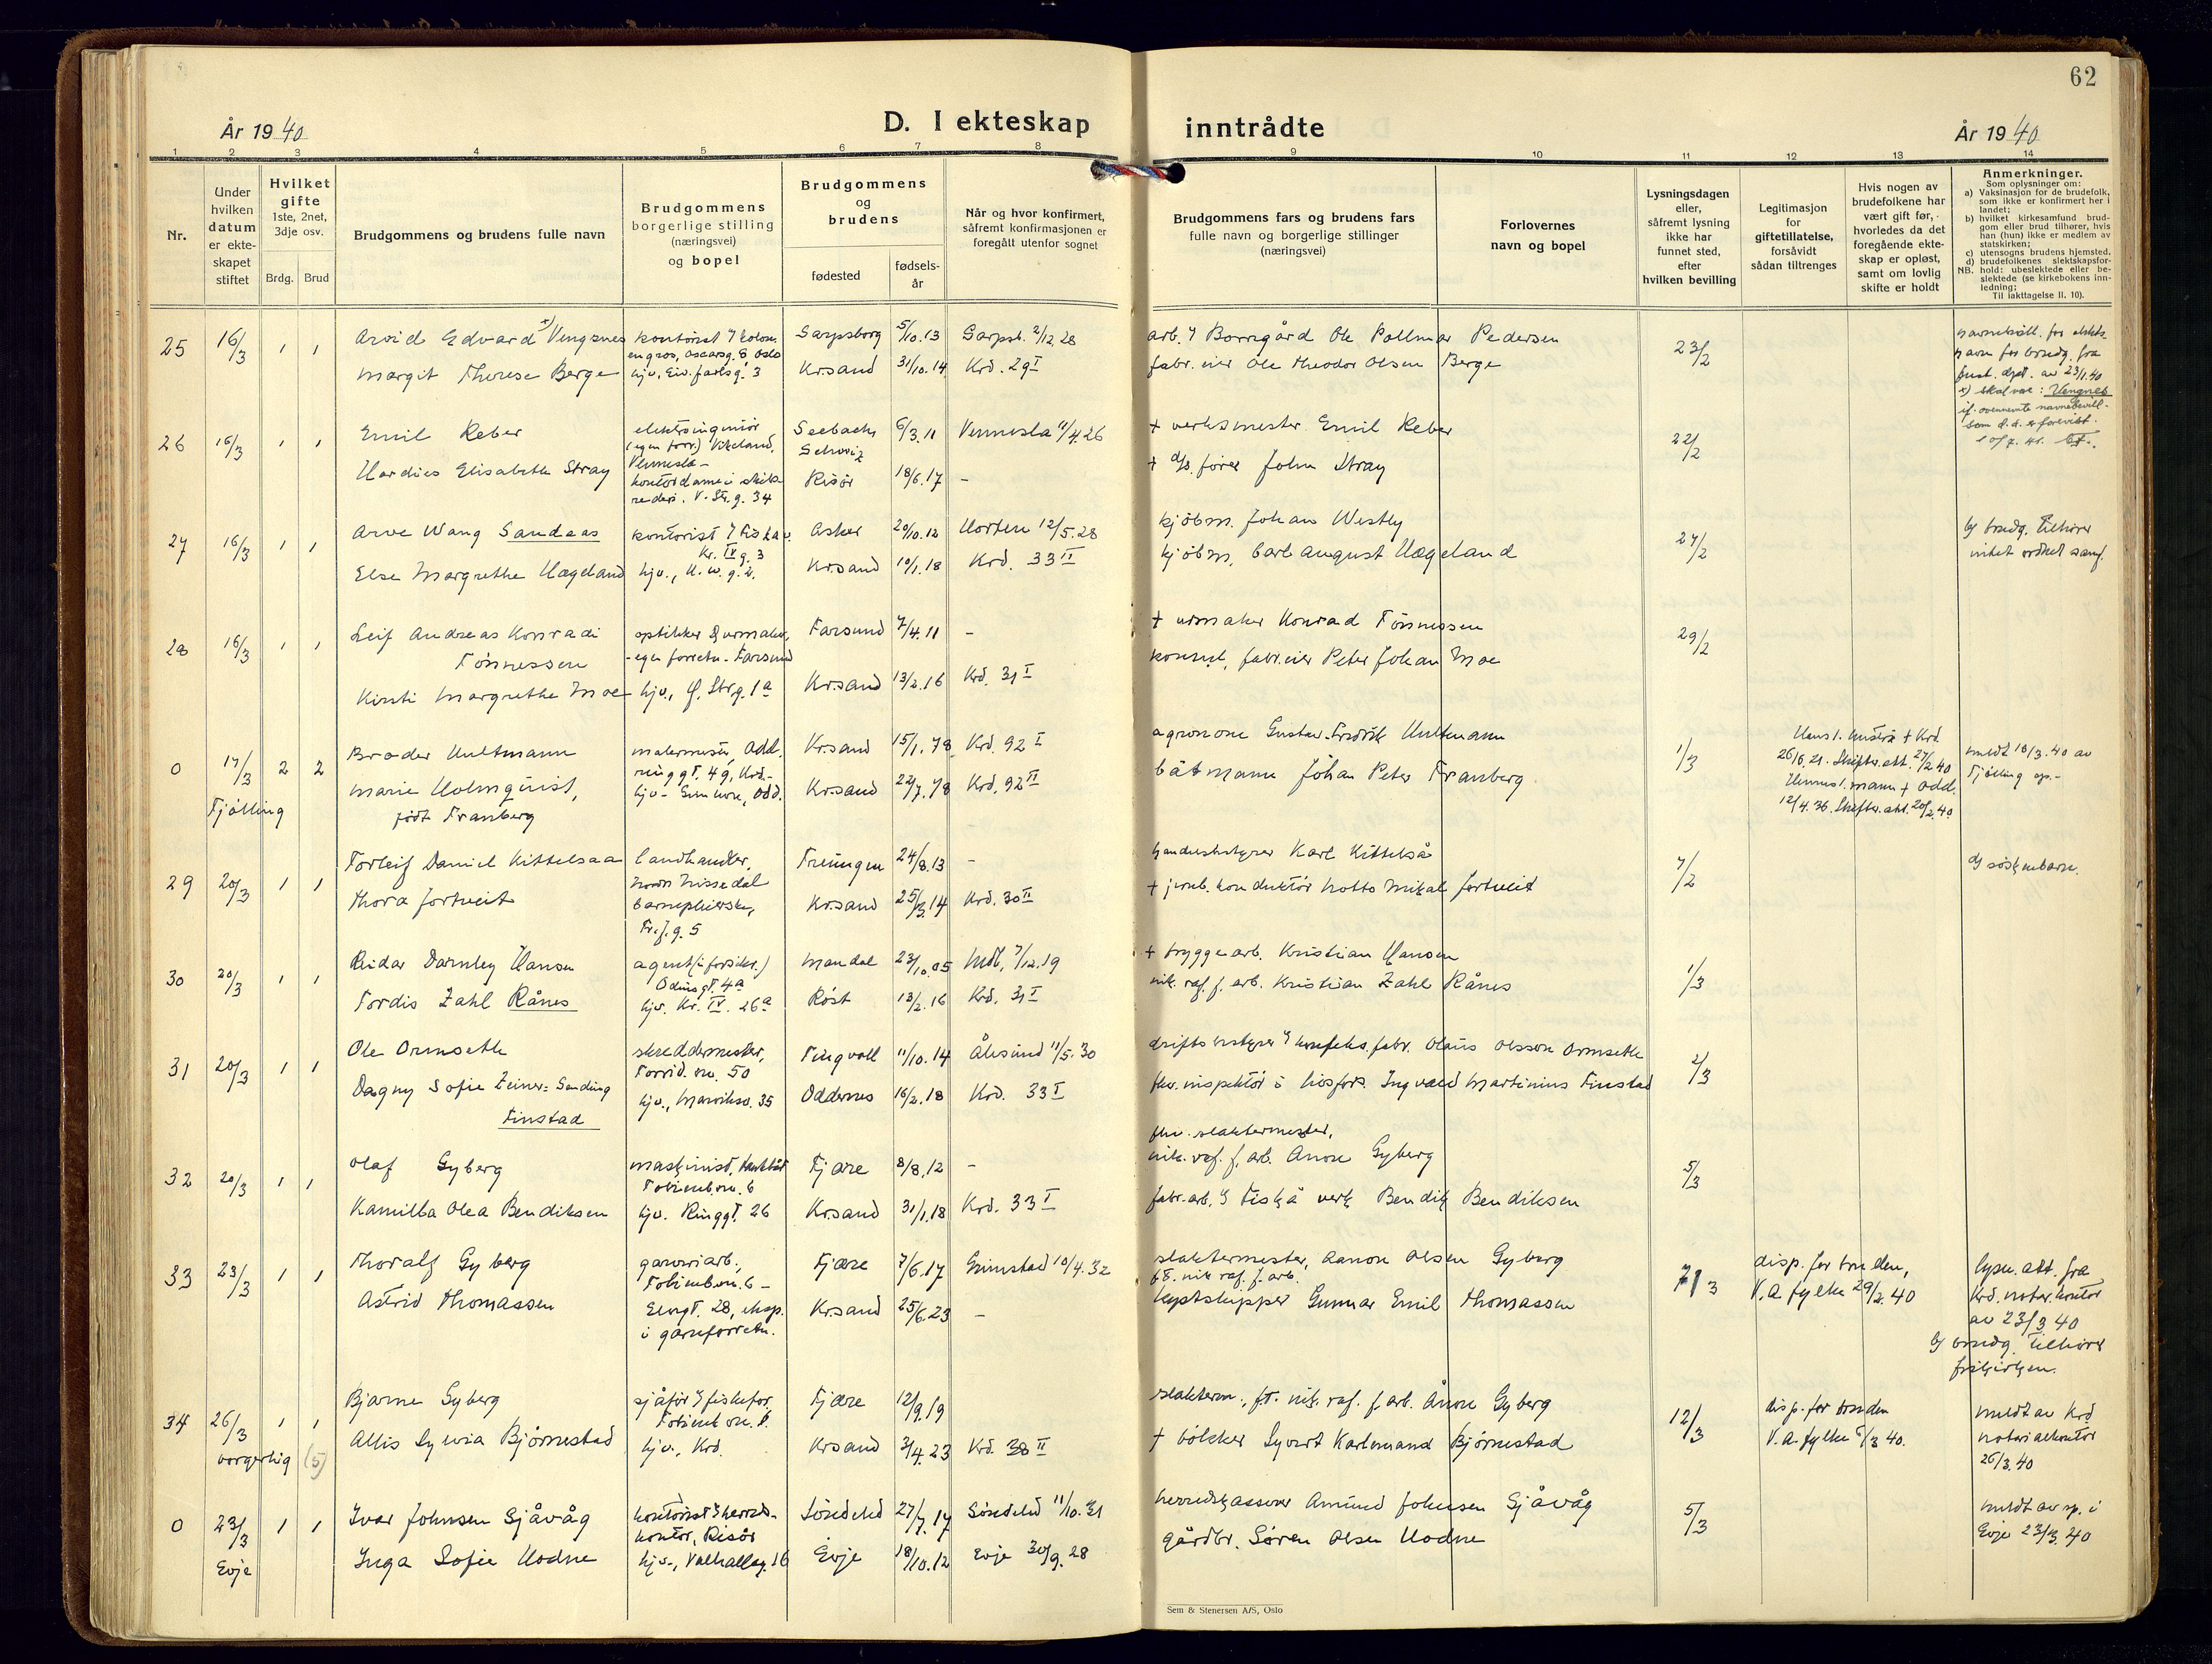 62
År 1940
D. I ekteskap inntrådte
År 1940
1 2 3 4 5 6 7 8 9 10 11 12 13 14
Nr.
Under hvilken datum er ekteskapet stiftet
Hvilket gifte 1ste, 2net, 3dje osv.
Brdg. Brud
Brudgommens og brudens fulle navn
Brudgommens borgerlige stilling (næringsvei) og bopel
Brudgommens og brudens
fødested
fødsels-år
Når og hvor konfirmert, såfremt konfirmasjonen er foregått utenfor sognet
Brudgommens fars og brudens fars fulle navn og borgerlige stillinger (næringsvei)
Forlovernes navn og bopel
Lysningsdagen eller, såfremt lysning ikke har funnet sted, efter hvilken bevilling
Legitimasjon for giftetillatelse, forsåvidt sådan tiltrenges
Hvis nogen av brudefolkene har vært gift før, hvorledes da det foregående ekteskap er opløst, samt om lovlig skifte er holdt
Anmerkninger.
Som oplysninger om:
a) Vaksinasjon for de brudefolk, som ikke er konfirmert her i landet;
b) hvilket kirkesamfund brudgom eller brud tilhører, hvis han (hun) ikke er medlem av statskirken;
c) utensogns brudens hjemsted.
d) brudefolkenes slektskapsforhold: ubeslektede eller beslektede (se kirkebokens innledning;
NB. Til iakttagelse II. 10).
25 16/3 1 1 Arvid Edvard x) Vengsnes kontorist Sarpsborg 5/10.13 Sarpsb. 2/12.28 arb. Borregård Ole Pedersen 23/2
en gros, Oscarsg. Oslo
Margit Therese Berge hjv. 3 Kr.sand 31/10.14 Krd. 29 I fabr.eier Ole Theodor Olsen Berge
av 23/1.40
x) skal være: Vengnes
26 16/3 1 1 Emil Reber elektroingeniør Seebach, Schweiz 6/3.11 Vennesla 11/4.26 + verksmester Emil Reber 22/2
(egen forr.) Vikeland, Vennesla -
Hardies Elisabeth Stray kontordame i skibsrederi. V. Str.g. 34 Risør 18/6.17 - + fører John Stray
27 16/3 1 1 Arve Wang Sandaas kontorist Asker 20/10.12 Horten 12/5.28 kjøbm. Johan Westly 27/2 b) brudg. tilhører intet ordnet samf.
Kr. IV g. 3
Else Margrethe Hægeland hjv., H.W.g. 2. Kr.sand 10/1.18 Krd. 33 II kjøbm. Carl August Hægeland
28 16/3 1 1 Leif Andreas Konradi Tønnessen optikker & urmaker, Farsund 7/4.11 - + urmaker Konrad Tønnessen 29/2
- egen forretn. - Farsund
Kirsti Margrethe Moe hjv., Strg. 1a Kr.sand 13/2.16 Krd. 31 I konsul, fabr.eier Peter Johan Moe
0 17/3 2 2 Broder Hultmann malermester, Odd. Kr.sand 15/1.78 Krd. 92 I agronom Gustav Fredrik Hultmann 1/3
Fjølling Marie Holmquist, født Franberg hjv. Odd. Kr.sand 22/7.78 Krd. 92 II båtmann Johan Peter Franberg
Hans 1. hustru + Krd. 26/6.21. Skifter.att. 27/2 40
Hennes 1. mann + Odd. 12/4.36. Skifter.att. 20/2.40
meldt 18/3.40 av Fjølling sp. -
29 20/3 1 1 Torleif Daniel Kittelsaa landhandler, Treungen 24/8.13 - handelsbestyrer Karl Kittelså 7/2 d) søskenbarn.
Nissedal
Thora Fortveit barnepleierske, Kr.sand 25/3.14 Krd. 30 II + jernb.konduktør Notto Mikal Fortveit
Fr.f.g. 5
30 20/3 1 1 Reidar Darnley Hansen agent (i forsikr.) Mandal 23/10.05 Mdl. 7/12.19 + bryggearb. Kristian Hansen 1/3
Odinsgt. 4a
Tordis Zahl Rånes hjv. Kr. IV. 26a Røst 13/2.16 Krd. 31 I nik. raf. f. arb. Kristian Zahl Rånes
31 20/3 1 1 Ole Ormseth skreddermester, Tingvoll 11/10.14 Ålesund 11/5.30 driftsbestyrer konfeks.fabr. Olaus Olsson Ormseth 2/3
Torrid. v. 50
Dagny Sofie Zeiner-Sanding Tinstad hjv., Marviksv. 35 Oddernes 16/2.18 Krd. 33 I fhv. inspektør i livsfors. Ingvald Martinius Tinstad
32 20/3 1 1 Olaf Gyberg maskinist, Fjære 8/8.12 - fhv. slaktermester, nik. raf. f. arb. Anon Gyberg 5/3
Tobienborv. 6
Kamilla Olea Bendiksen hjv. Ringgt. 26 Kr.sand 31/1.18 Krd. 33 I fabr.arb. Fiskå verk Bendik Bendiksen
33 23/3 1 1 Thoralf Gyberg garveriarb., Fjære 7/6.17 Grimstad 10/4.32 slaktermester, Aanon Olsen Gyberg 7/3
Tobienborv. 6 - f.t. nik. raf. f. arb.
Astrid Thomassen Elvegt. 28, eksp. i garnforretn. Kr.sand 25/6.23 - kystskipper Gunnar Emil Thomassen
disp. for bruden, V.A. fylke 29/2.40
lysn.att. fra Krd. notar.kontor av 23/3 40
b) brudg. tilhører frikirken.
34 26/3 1 1 Bjarne Gyberg sjåfør fiskefor. Fjære 12/9.19 slakterm., f.t. nik. raf. f. arb. Anon Gyberg 12/3
borgerlig (5) Tobienborv. 6
Allis Sylvia Bjørnestad hjv., Krd. Kr.sand 3/4.23 Krd. 38 II + bøkker Syvert Karlemand Bjørnestad
disp. for bruden V.A. fylke 6/3 40.
meldt av Krd. notarialkontor 26/3.40
0 23/3 1 1 Ivar Johnsen Sjåvåg kontorist herreds-kontor, Risør Søndeled 27/7.17 Søndeled 11/10.31 herredskasserer Amund Johnsen Sjåvåg 5/3
Evje Inga Sofie Hodne hjv., Valhallag. 16 Evje 18/10.12 Evje 30/9.28 gårdbr. Søren Olsen Hodne
meldt av sp. i Evje 23/3.40
Sem & Stenersen A/S, Oslo